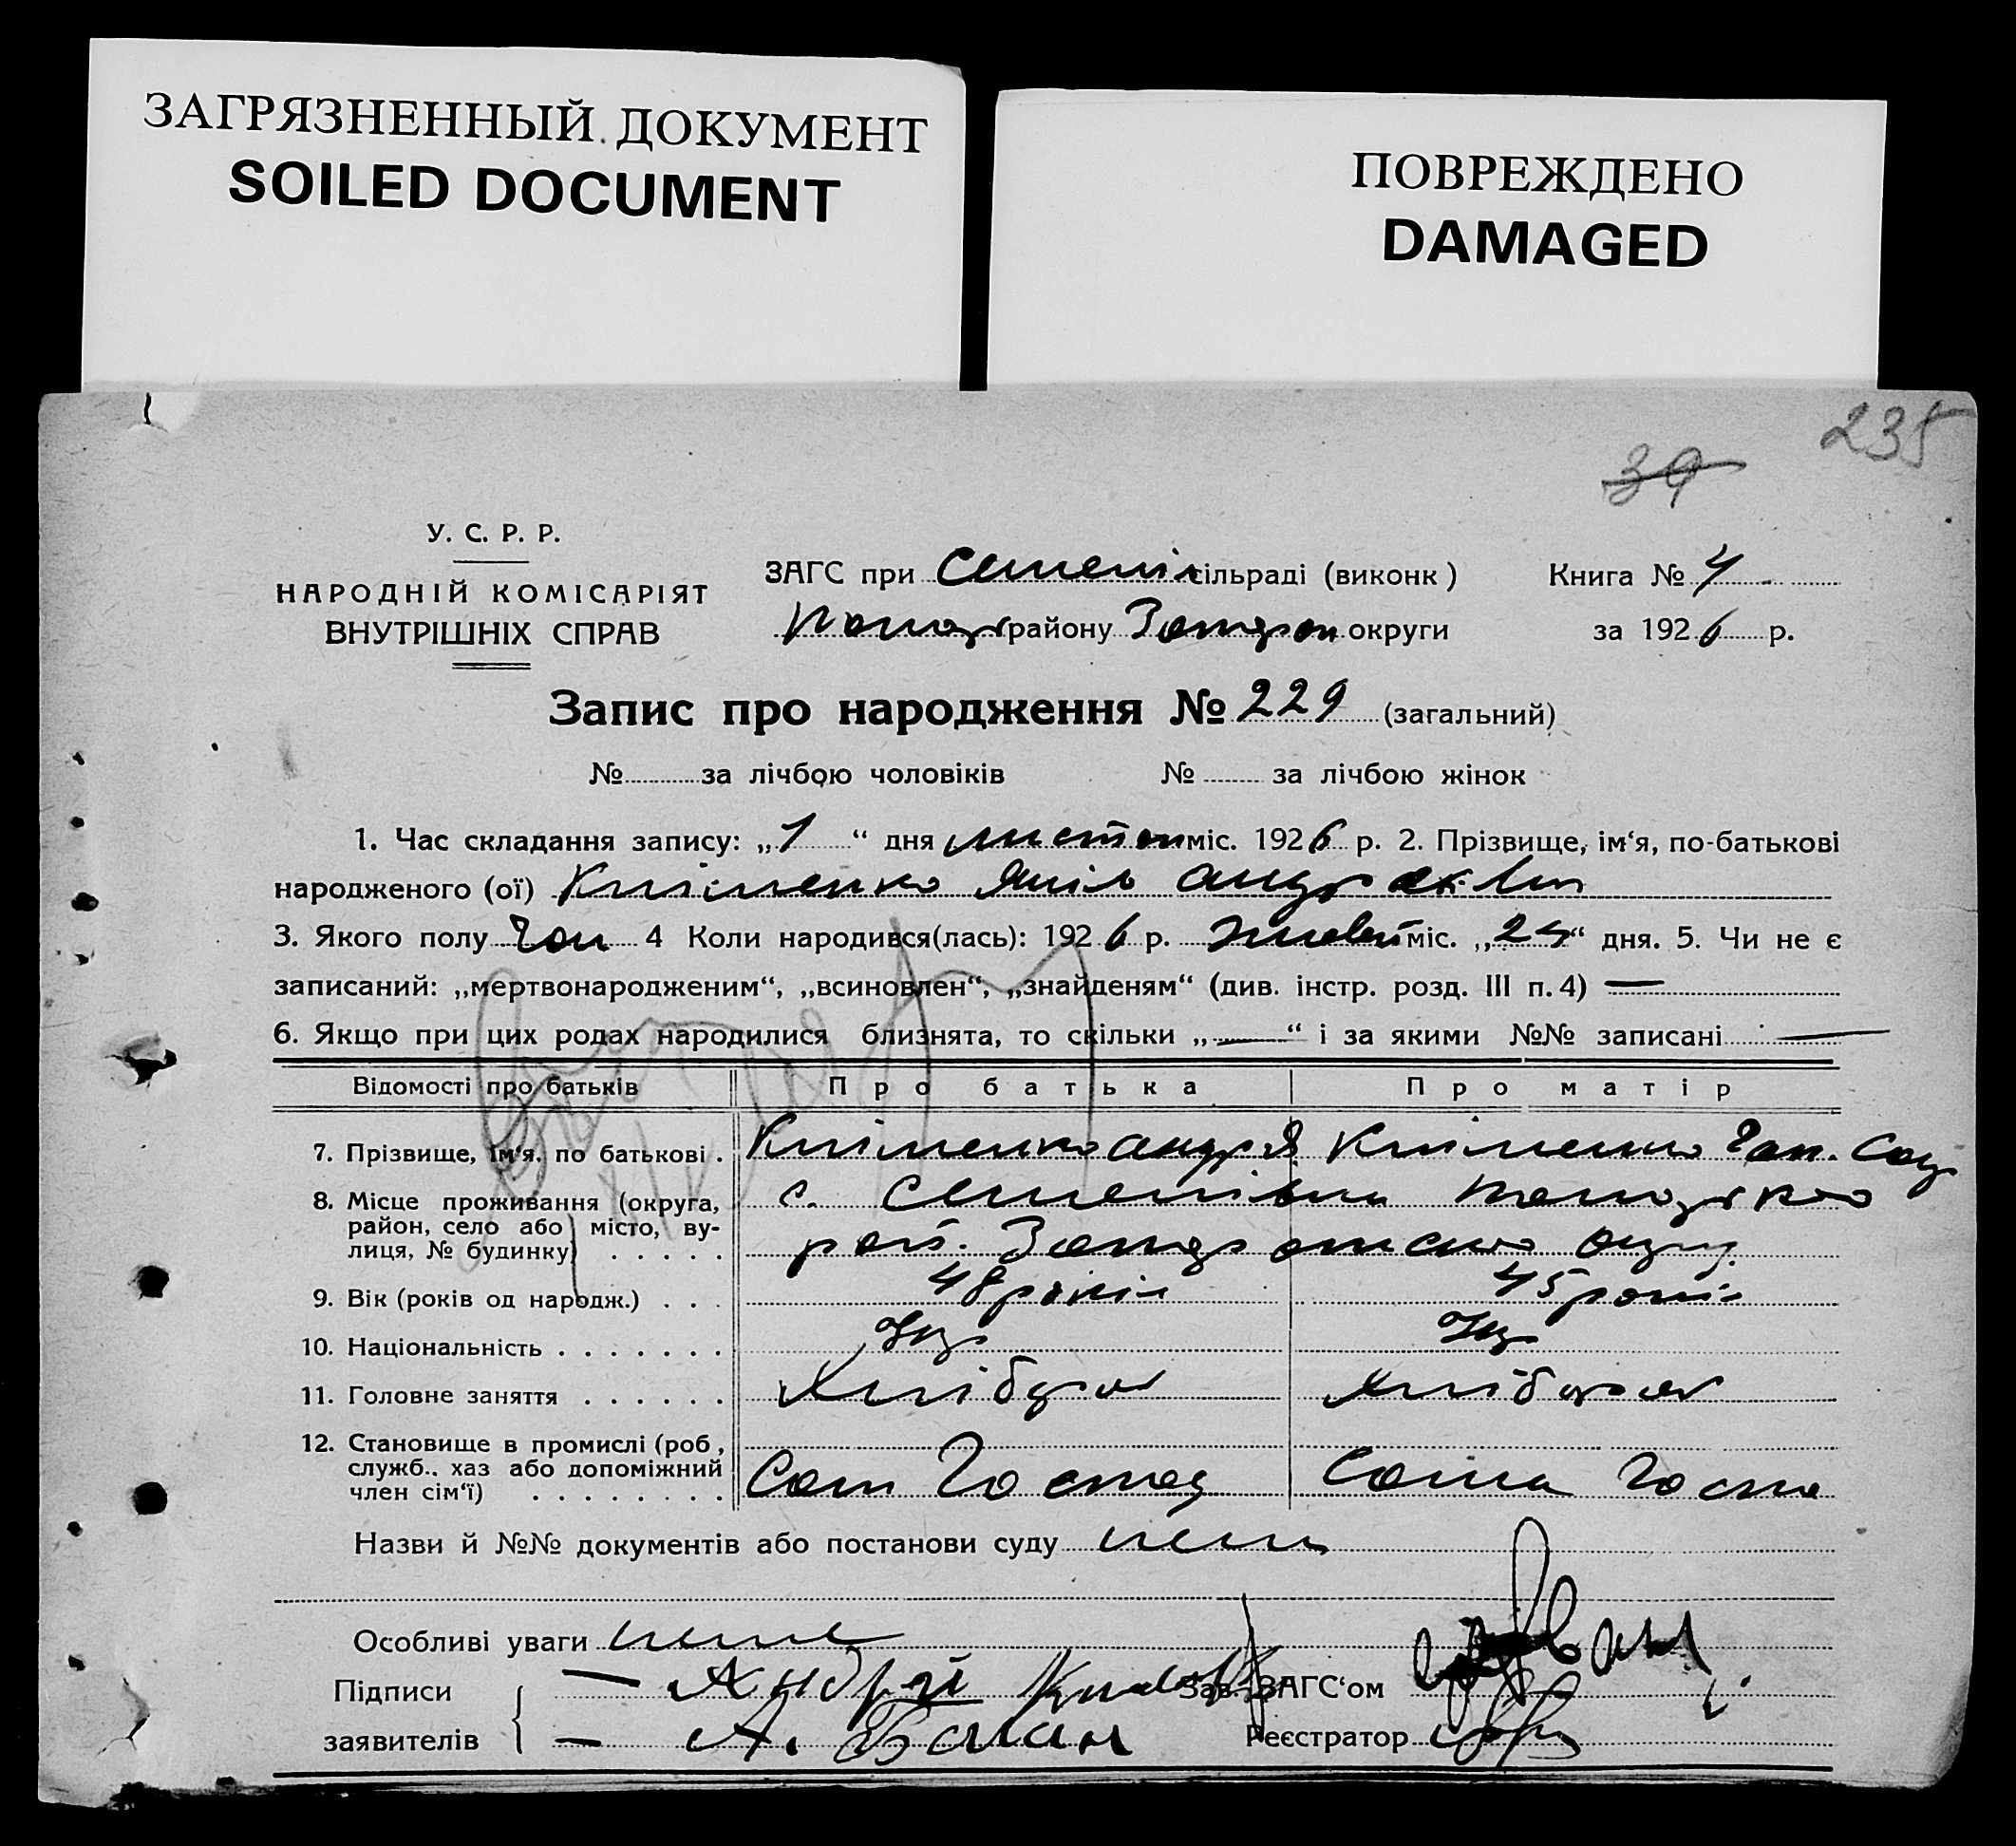 ЗАГРЯЗНЕННЫЙ ДОКУМЕНТ
SOILED DOCUMENT
ПОВРЕЖДЕНО
DAMAGED
235
39
У. С. Р. Р.
НАРОДНІЙ КОМІСАРІЯТ
ВНУТРІШНІХ СПРАВ
ЗАГС при Семенів сільраді (виконк)
району Запор округи
Книга № 4
за 1926 р.
Запис про народження № 229 (загальний)
№ за лічбою чоловіків № за лічбою жінок
1. Час складання запису: „1“ дня листоп міс. 1926 р. 2. Прізвище, ім‘я, по-батькові
народженого (ої) Кліменко
3. Якого полу Чол 4 Коли народився(лась): 1926 р. жовт міс. „24“ дня. 5. Чи не є
записаний: „мертвонародженим“, „всиновлен“, „знайденям“ (див. інстр. розд. III п. 4) —
6. Якщо при цих родах народилися близнята, то скільки „—“ і за якими №№ записані —
Відомості про батьків Про батька Про матір
7. Прізвище, ім‘я. по батькові . Кліменко Андрій Кліменко
8. Місце проживання (округа, с. Семенівка
район, село або місто, ву-
лиця, № будинку) . . . . . рай. Запор
9. Вік (років од народж.) . . . 48 років 45 років
10. Національність . . . . . . . Укр Укр
11. Головне заняття . . . . . . Хлібороб хлібороб
12. Становище в промислі (роб,
служб., хаз або допоміжний
член сім‘ї) . . . . . . . . Сам Господ Сама Госпо
Назви й №№ документів або постанови суду нема
Особливі уваги нема
Підписи
заявителів
— Андрій
— А. Балан
Зав. ЗАГС‘ом
Реєстратор